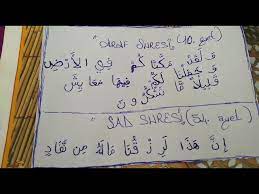 "ARAF SURESİ (10. ayet)
وَلَقَدْ مَكَّنَّا كُمْ فِي الْأَرْضِ
وَجَعَلْنَا لَكُمْ فِيهَا مَعَايِشَ
قَلِيلًا مَا تَشْكُرُونَ
"SAD SURESİ (54. ayet)
إِنَّ هَذَا لَرِزْقُنَا مَالَهُ مِن نَّفَادٍ